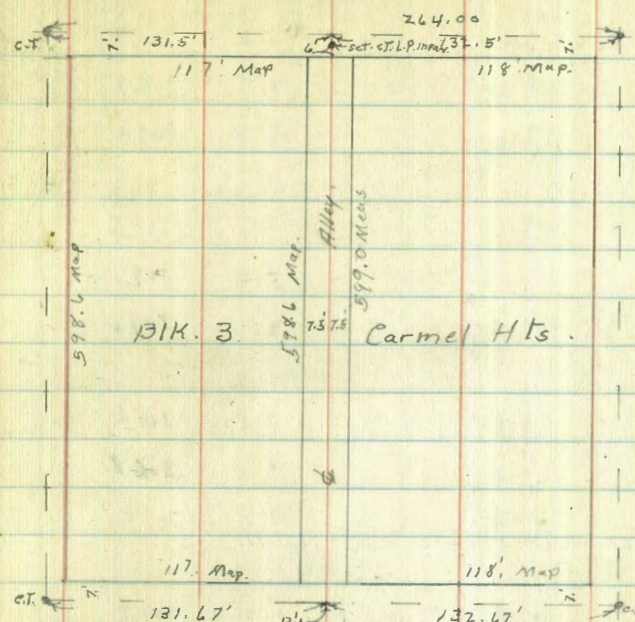 264.00
C.T. 7' 131.5' 6" set. c.T. L.P. in pav. 132.5' 7'
117' Map 118' Map.
598.6 Map
Blk. 3
598.6 Map.
Alley.
7.5' 7.5'
599.0 Meas
Carmel Hts.
117. Map. 118' Map
C.T. 7' 131.67' 132.67' 7'